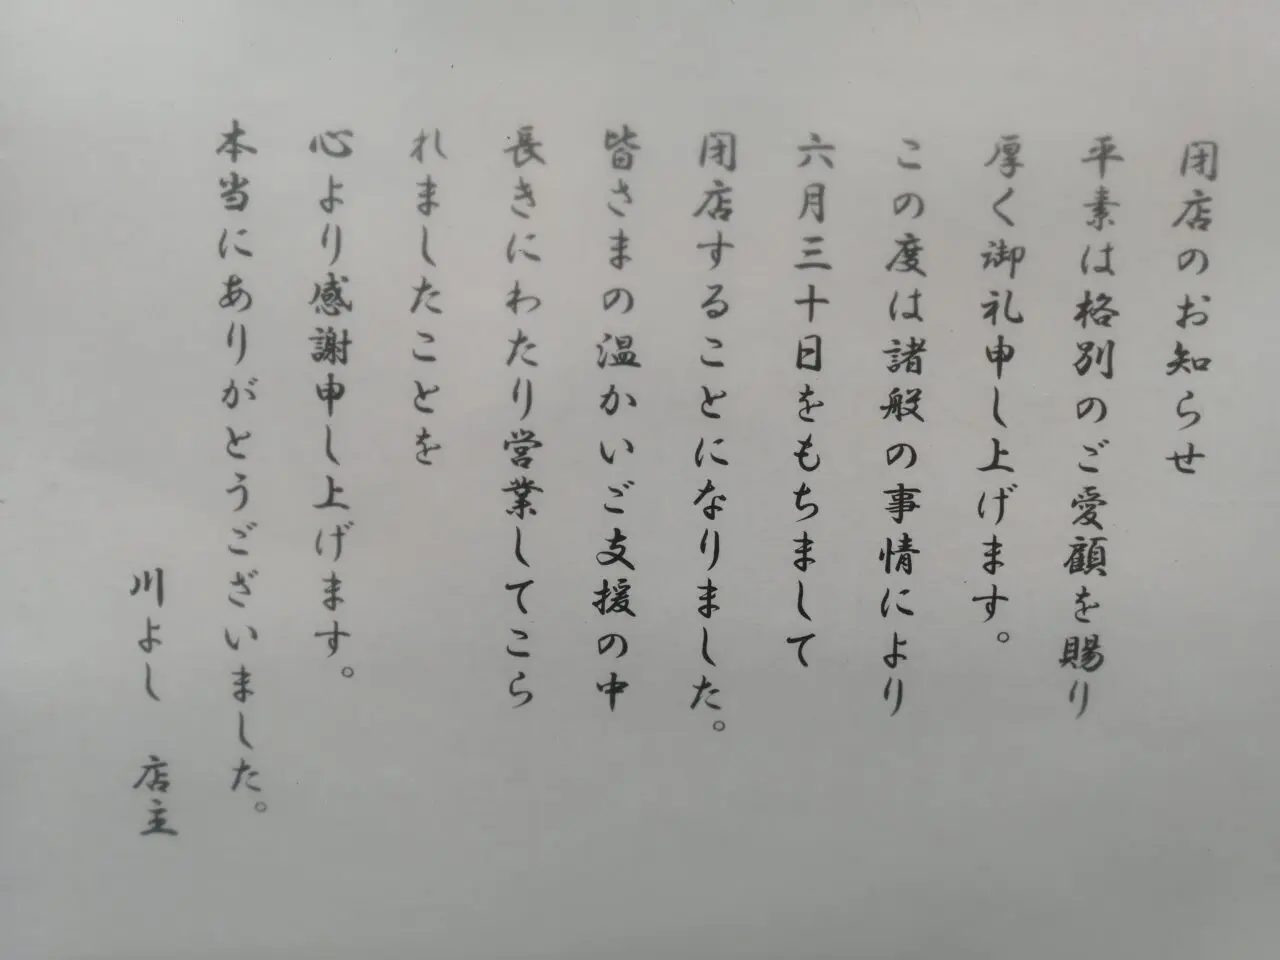 閉店のお知らせ
平素は格別のご愛顧を賜り
厚く御礼申し上げます。
この度は諸般の事情により
六月三十日をもちまして
閉店することになりました。
皆さまの温かいご支援の中
長きにわたり営業してこら
れましたことを
心より感謝申し上げます。
本当にありがとうございました。
川よし　店主